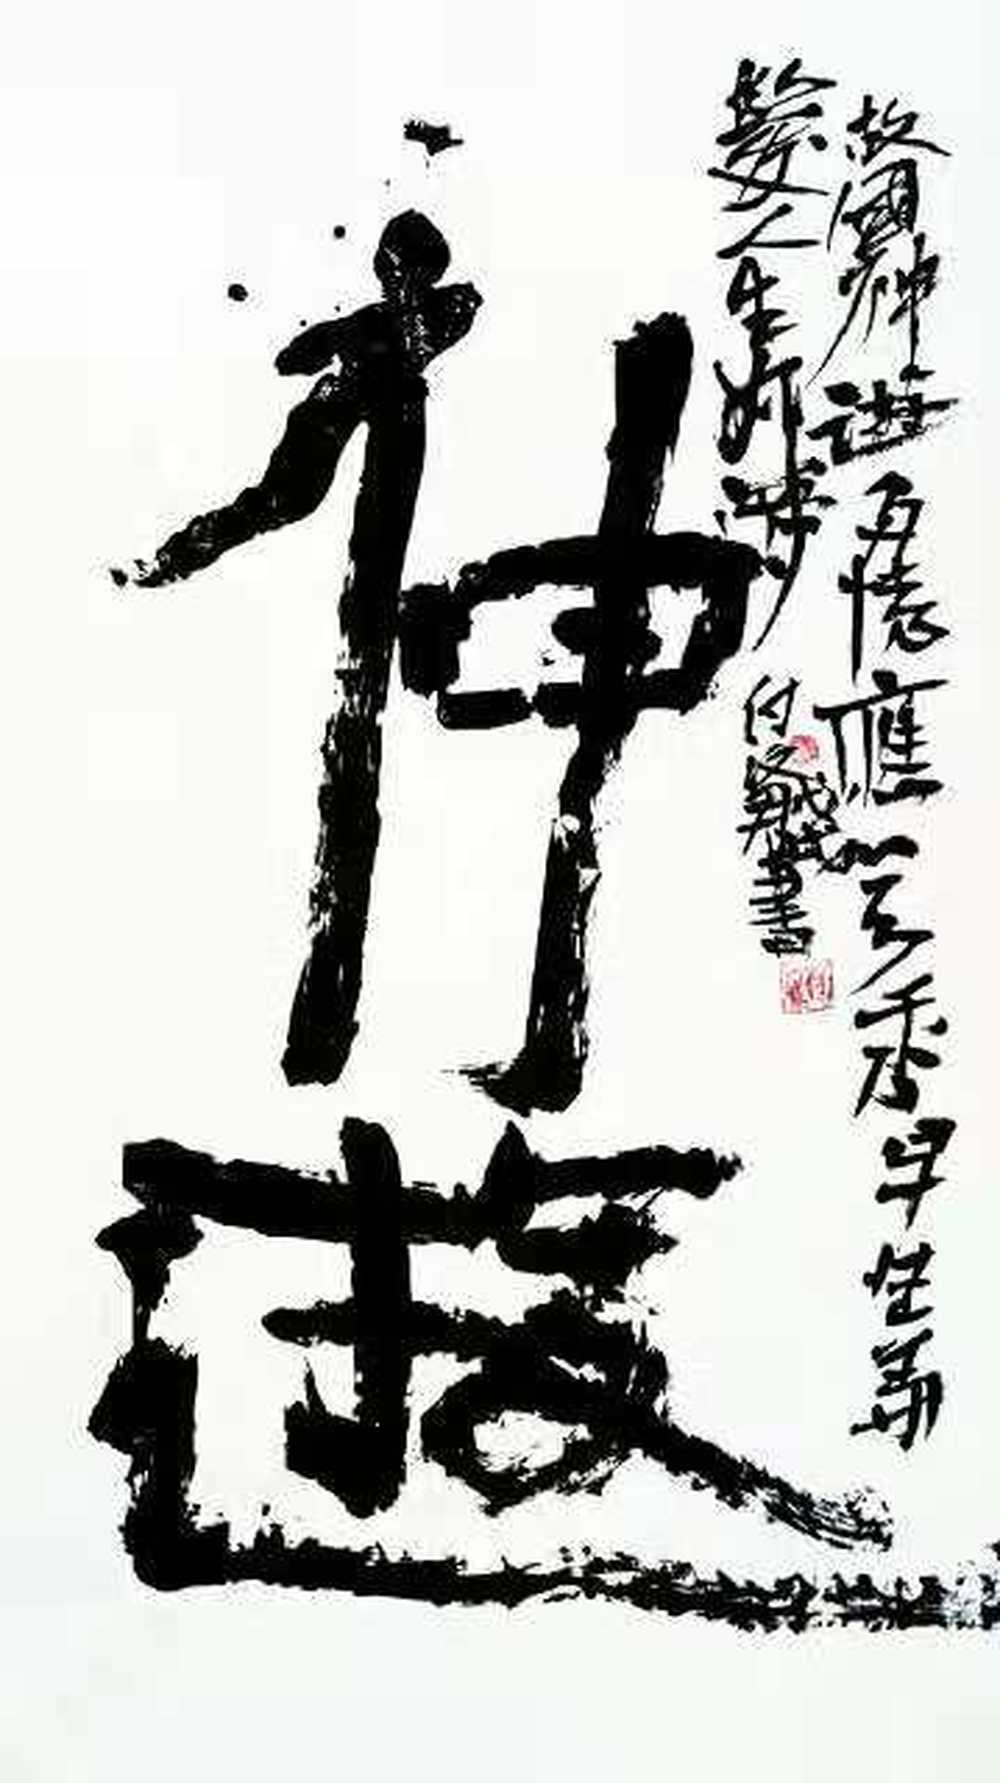 故國神遊多情應笑我早生華
髮人生如夢
付書
神遊